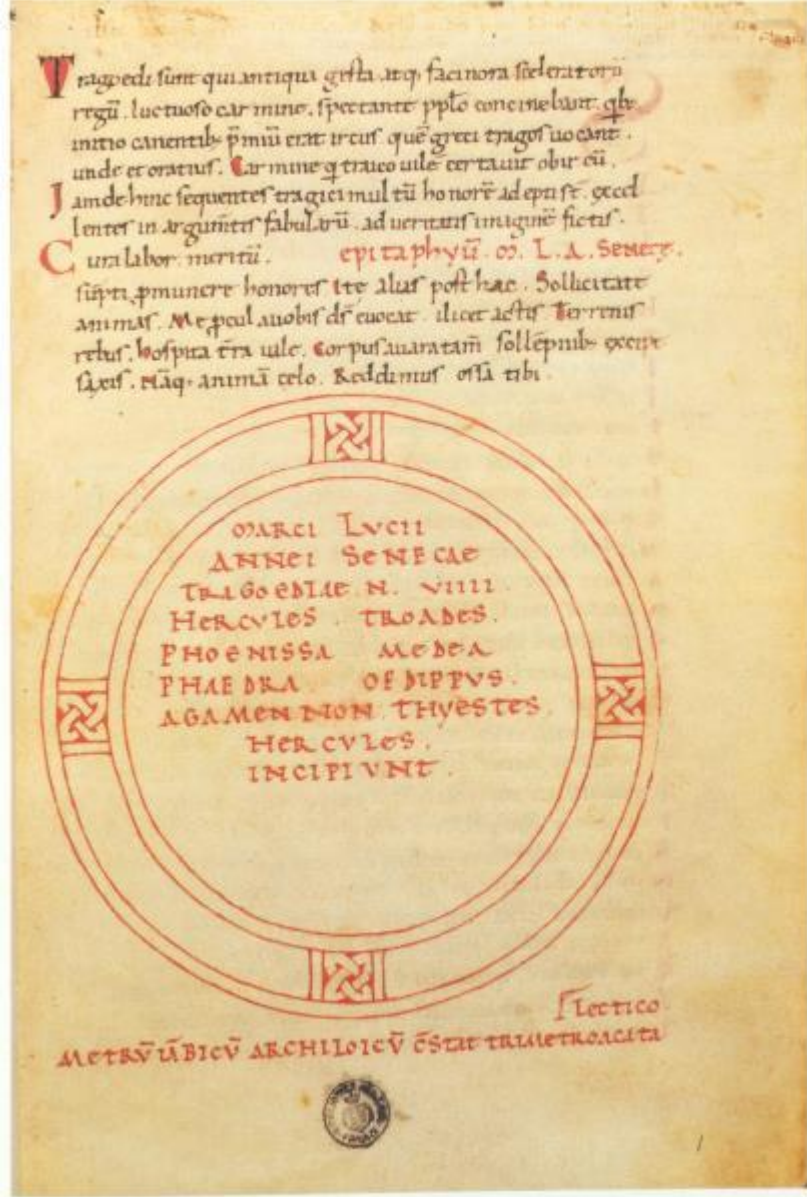 Tragoedi sunt qui antiqua gesta atq; facinora sceleratorū
regū . luctuoso carmine . spectante pplo concinebant . qib;
initio canentib; p̄miū erat ircus quē greci tragos uocant .
unde et oratius . Carmine q tragico uilē certauit obircū .
Iam dehinc sequentes tragici multū honorē adepti st̄ . excel
lentes in argum̄tis fabularū . ad ueritatis imaginē fictis .
Cura labor . meritū . epitaphyū . M . L . A . Senece .
sūpti p munere honores Ite alias posthac . Sollicitate
animas . Me procul a uobis ds̄ euocat . ilicet actis Terrenis
rebus . hospita t̄ra uale . Corpus auara tam̄ sollēpnib; excipe
saxis . Nāq; animā celo . Reddimus ossa tibi .
MARCI LVCII
ANNEI SENECAE
TRAGOEDIAE N . VIIII
HERCVLES . TROADES .
PHOENISSA MEDEA
PHAEDRA OEDIPPVS .
AGAMENNON THYESTES .
HERCVLES .
INCIPIVNT .
lectico
METRV̄ IĀBICV̄ ARCHILOICV̄ C̄STAT TRIMETRO ACATA
1